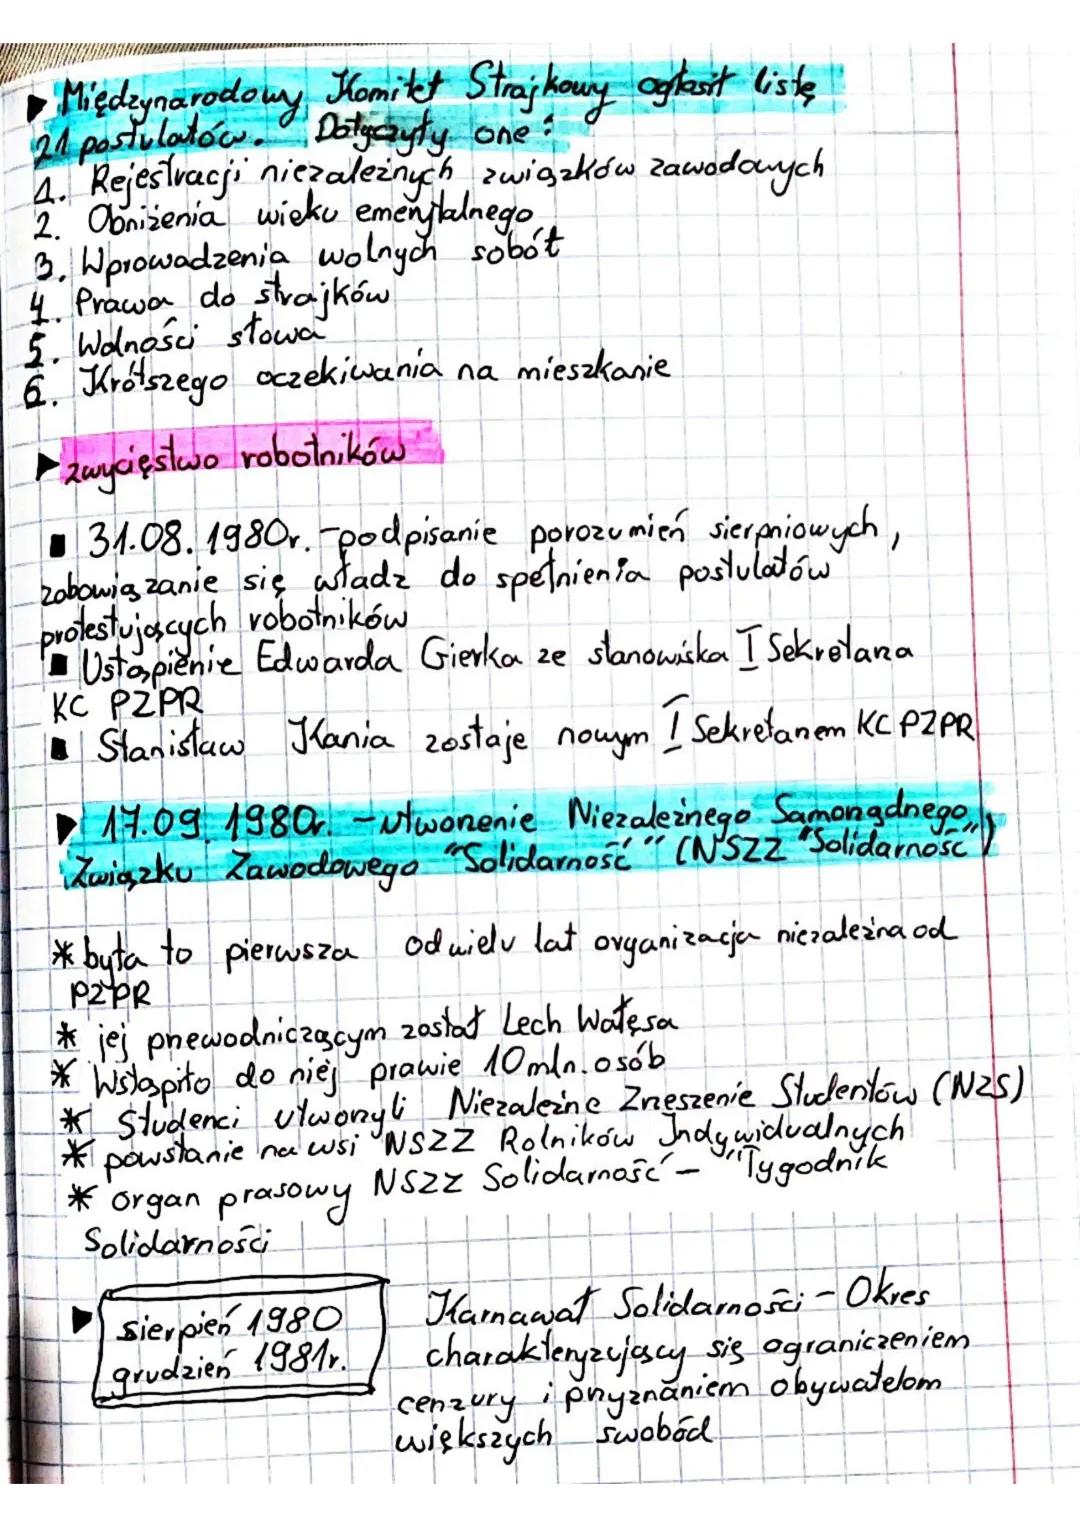 ▶ Międzynarodowy Komitet Strajkowy ogłosił listę
21 postulatów. Dotyczyły one:
1. Rejestracji niezależnych związków zawodowych
2. Obniżenia wieku emerytalnego
3. Wprowadzenia wolnych sobót
4. Prawa do strajków
5. Wolności słowa
6. Krótszego oczekiwania na mieszkanie
▶ zwycięstwo robotników
■ 31.08.1980r. - podpisanie porozumień sierpniowych,
zobowiązanie się władz do spełnienia postulatów
protestujących robotników
■ Ustąpienie Edwarda Gierka ze stanowiska I Sekretarza
KC PZPR
■ Stanisław Kania zostaje nowym I Sekretarzem KC PZPR
▶ 17.09.1980r. - utworzenie Niezależnego Samorządnego
Związku Zawodowego "Solidarność" (NSZZ "Solidarność")
* była to pierwsza od wielu lat organizacja niezależna od
PZPR
* jej przewodniczącym został Lech Wałęsa
* Wstąpiło do niej prawie 10 mln. osób
* Studenci utworzyli Niezależne Zrzeszenie Studentów (NZS)
* powstanie na wsi NSZZ Rolników Indywidualnych
* organ prasowy NSZZ Solidarność - "Tygodnik
Solidarności
▶ sierpień 1980
grudzień 1981r.
Karnawał Solidarności - Okres
charakteryzujący się ograniczeniem
cenzury i przyznaniem obywatelom
większych swobód